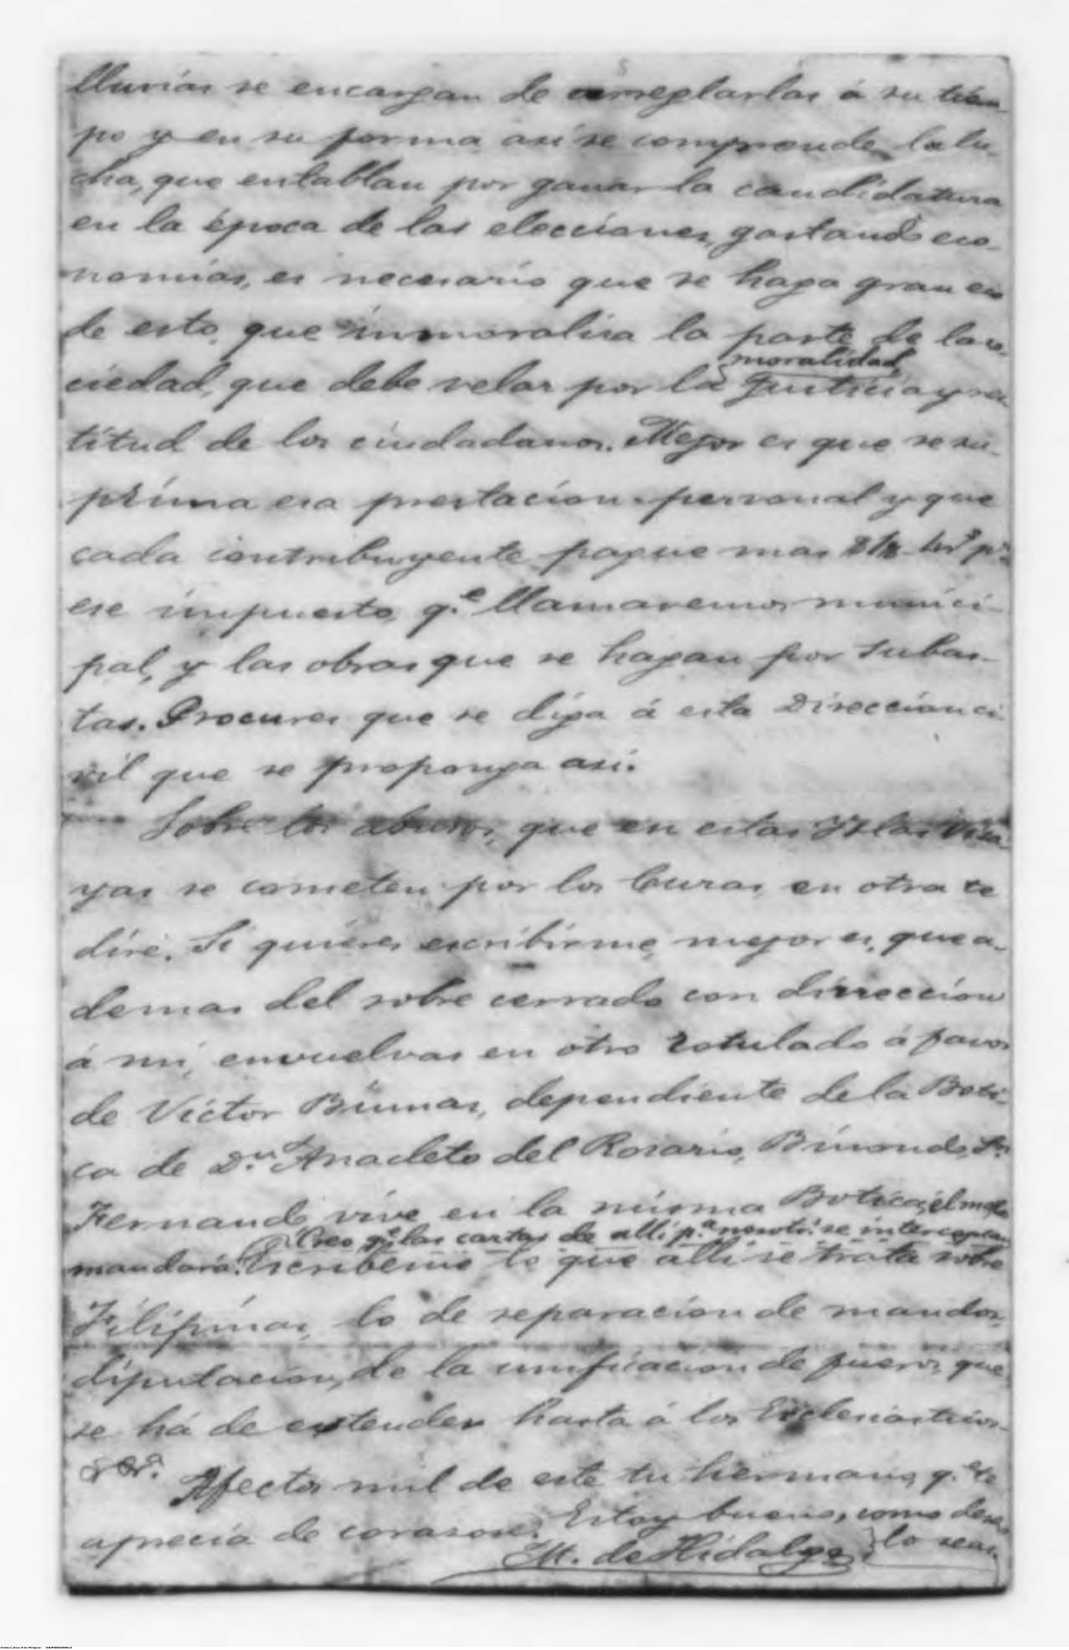 lluvias se encargan de arreglarlas á su tiem-
po y en su forma así se comprende la lu-
cha, que entablan por ganar la candidatura
en la época de las elecciones, gastando eco-
nomias, es necesario que se haga gran
de esto, que inmoralisa la parte de la so-
ciedad, que debe velar por la moralidad, justicia y rec-
titud de los ciudadanos. Mejor es que se su-
prima esa prestacion personal y que
cada contribuyente pague mas
ese impuesto q.e llamaremos munici-
pal, y las obras que se hagan por subas-
tas. Procures que se diga á esta Direccion ci-
vil que se proponga asi.
Sobre los abusos, que en estas Yslas Visa-
yas se cometen por los Curas, en otra te
diré. Si quieres escribirme, mejor es, que a-
demas del sobre cerrado con dirreccion
á mi, envuelvas en otro rotulado á favor
de Victor Biunas, dependiente de la Boti-
ca de D.n Anacleto del Rosario, Binondo, S.n
Fernando vive en la misma Botica, él me lo
Creo q.e las cartas de alli p.a nosotr.s se interceptan
mandará. Escribeme lo que alli se trata sobre
Filipinas, lo de separacion de mandos,
diputacion, de la unificacion de fueros, que
se há de extender hasta á los Eclesiasticos
Afectos mil de este tu hermano, q.e te
aprecia de corason. Estoy bueno, como deseo
lo seas.
M. de Hidalgo